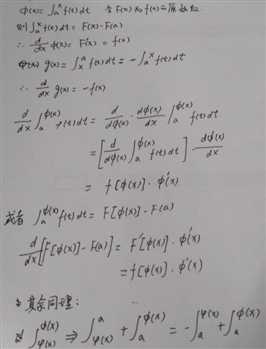 Φ(x)=∫ₐˣ f(t)dt 令F(x)为f(x)一原函数
则∫ₐˣ f(t)dt = F(x)-F(a)
∴ d/dx Φ(x)= F'(x) = f(x)
g(x) = ∫ₓᵃ f(t)dt = -∫ₐˣ f(t)dt
∴ d/dx g(x) = -f(x)
d/dx ∫ₐ^φ(x) f(t)dt = d/dφ(x) · dφ(x)/dx ∫ₐ^φ(x) f(t)dt
= [d/dφ(x) ∫ₐ^φ(x) f(t)dt] · dφ(x)/dx
= f[φ(x)] · φ'(x)
或者 ∫ₐ^φ(x) f(t)dt = F[φ(x)] - F(a)
d/dx [F[φ(x)] - F(a)] = F'[φ(x)] · φ'(x)
= f[φ(x)] · φ'(x)
复杂同理:
∫_ψ(x)^φ(x) ⇒ ∫_ψ(x)^a + ∫ₐ^φ(x) = -∫ₐ^ψ(x) + ∫ₐ^φ(x)